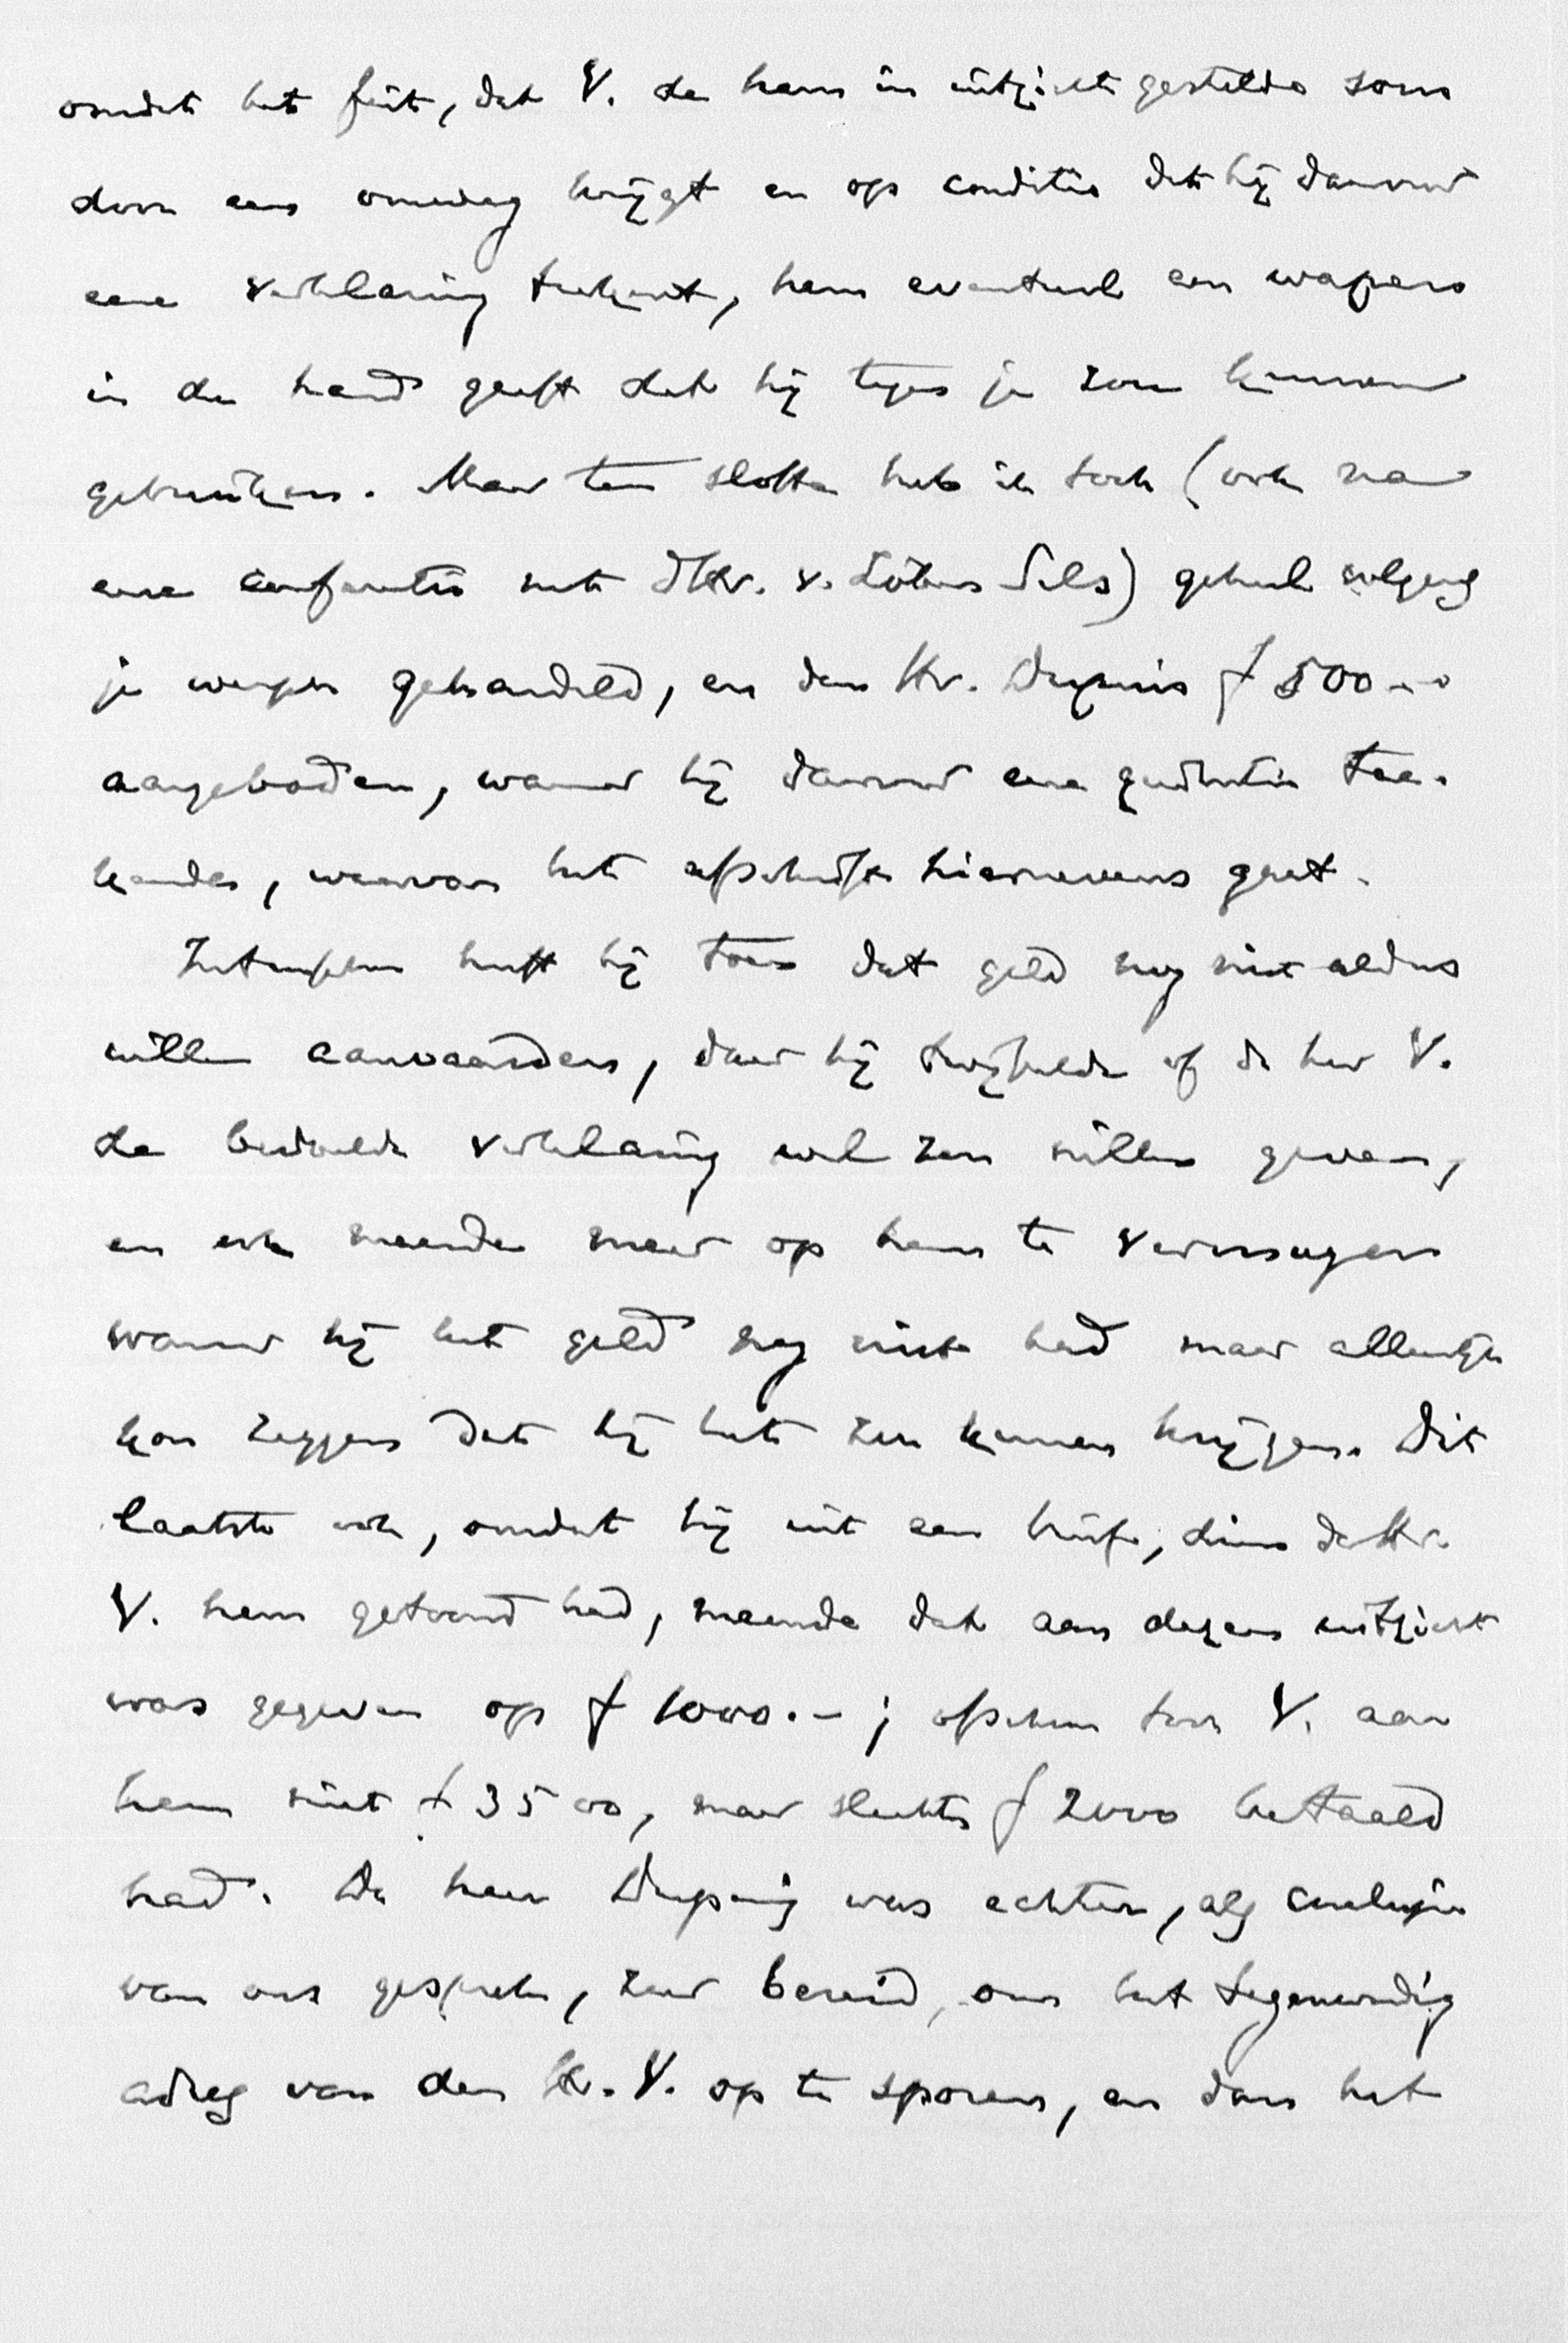 omdat het feit, dat V. de hem in uitzicht gestelde som
door een omweg krijgt en op conditie dat hij daarvoor
eene verklaring teekent, hem eventueel een wapen
in de hand geeft dat hij tegen je zou kunnen
gebruiken. Maar ten slotte heb ik toch (ook na
eene conferentie met Mr. v. Löben Sels) geheel volgens
je wenschen gehandeld, en den Hr. Dupuis ƒ 500.-
aangeboden, wanneer hij daarvoor eene quitantie tee-
kende, waarvan het afschrift hiernevens gaat.
Intusschen heeft hij toen dat geld nog niet aldus
willen aanvaarden, daar hij twijfelde of de heer V.
de bedoelde verklaring wel zou willen geven,
en ook meende meer op hem te vermogen
wanneer hij het geld nog niet had maar alleen
kon zeggen dat hij het zou kunnen krijgen. Dit
laatste ook, omdat hij uit een brief, dien de Hr.
V. hem getoond had, meende dat aan dezen uitzicht
was gegeven op ƒ 1000.-; ofschoon toch V. aan
hem niet ƒ 3500, maar slechts ƒ 2000 betaald
had. De heer Dupuis was echter, als conclusie
van ons gesprek, zeer bereid, om het tegenwoordig
adres van den Hr. V. op te sporen, en dan het